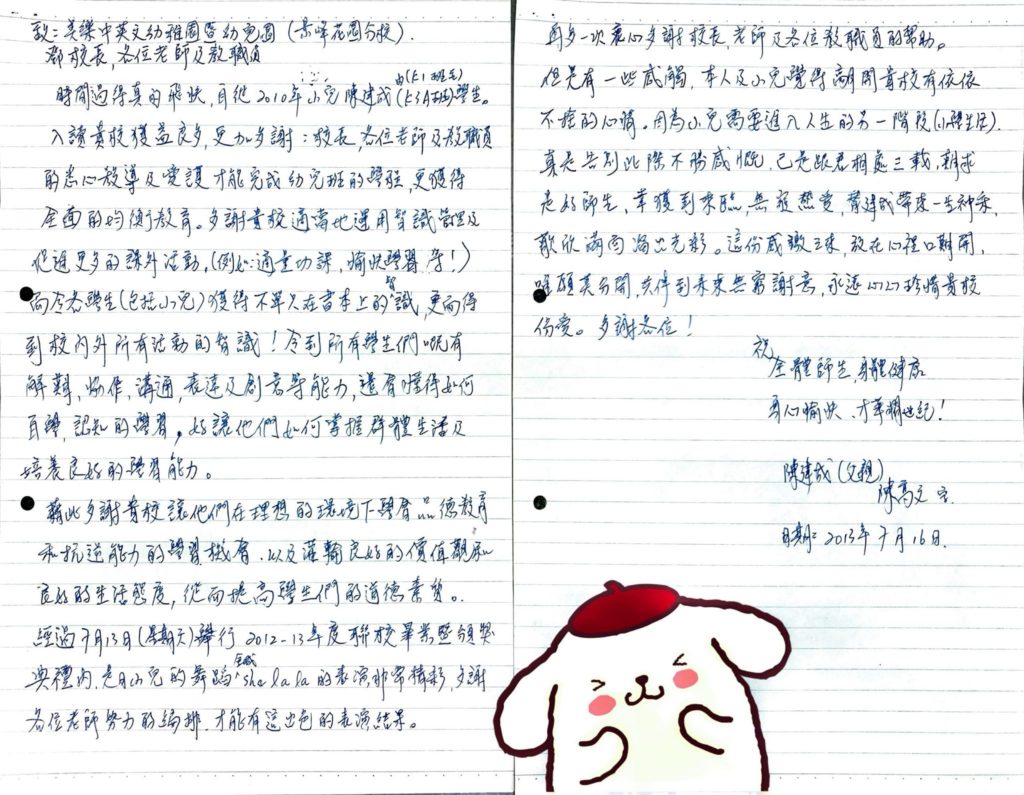 致：美樂中英文幼稚園暨幼兒園（景峰花園分校）．
鄧校長，各位老師及教職員
時間過得真的飛快，自從2010年小兒陳建成由(K1班至)(K3A班)學生。
入讀貴校獲益良多，更加多謝：校長，各位老師及教職員
的悉心教導及愛護才能完成幼兒班的學程，更獲得
全面的均衡教育。多謝貴校適當地運用智識管理及
促進更多的課外活動，(例如：適量功課，愉快學習等！)
而令各學生(包括小兒)獲得不單只在書本上的智識，更而得
到校內外所有活動的智識！令到所有學生們呢有
解難，協作，溝通，表達及創意等能力，還有懂得如何
自學，認知的學習，好讓他們如何掌握群體生活及
培養良好的學習能力。
藉此多謝貴校讓他們在理想的環境下學習品德教育
和抗逆能力的學習機會．以及灌輸良好的價值觀及
良好的生活態度，從而提高學生們的道德素質。
經過7月13日(星期六)舉行2012-13年度聯校畢業暨頒獎
典禮內，是日小兒的舞蹈sha la la的表演非常精彩，多謝
各位老師努力的編排，才能有這出色的表演結果。
再多一次衷心多謝校長，老師及各位教職員的幫助。
但是有一些感觸，本人及小兒覺得離開貴校有依依
不捨的心情。因為小兒需要進入人生的另一階段(小學生活)．
真是告別此際不勝感慨，已是跟君相處三載，
是好師生，幸獲到來臨，無從想愛，幫建成帶來一生神采，
歡欣滿而淌出光彩。這份感激，放在心裡口難開，
唯願莫分開，夾伴到未來無窮謝意，永遠心心珍惜貴校
份愛。多謝各位！
祝
全體師生，身體健康
身心愉快、才華擱世紀！
陳建成(父親)
陳高文 字．
日期：2013年7月16日．